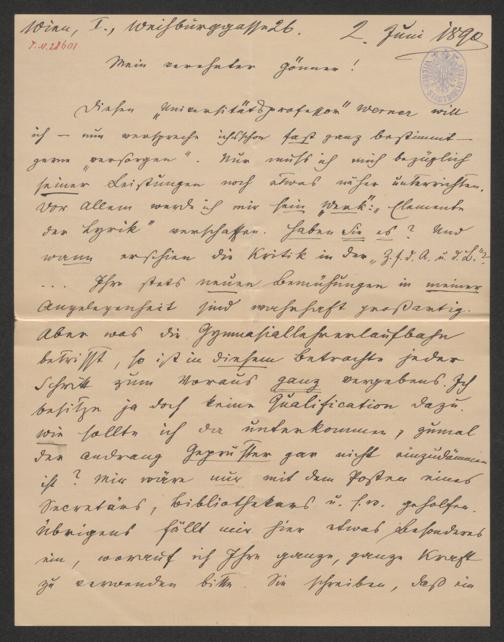 Wien, I., Weihburggasse 26.
2. Juni 1890
I.N. 28601
Mein verehrter Gönner!
Diesen „Universitätsprofessor" Werner will
ich – nun verspreche ich's schon fast ganz bestimmt –
gerne „versorgen". Nur muß ich mich bezüglich
seiner Leistungen noch etwas näher unterrichten.
Vor Allem werde ich mir sein „Werk": „Elemente
der Lyrik" verschaffen. Haben Sie es? Und
wann erschien die Kritik in der „Z. f. d. A. u. d. L."?
... Ihre stets neuen Bemühungen in meiner
Angelegenheit sind wahrhaft großartig.
Aber was die Gymnasiallehrerlaufbahn
betrifft, so ist in diesem Betrachte jeder
Schritt zum Voraus ganz vergebens. Ich
besitze ja doch keine Qualification dazu.
Wie sollte ich da unterkommen, zumal
der Andrang Geprüfter gar nicht einzudämmen
ist? Mir wäre nur mit dem Posten eines
Secretärs, Bibliothekars u. s. w. geholfen.
Übrigens fällt mir hier etwas Besonderes
ein, worauf ich Ihre ganze, ganze Kraft
zu verwenden bitte. Sie schreiben, daß ein